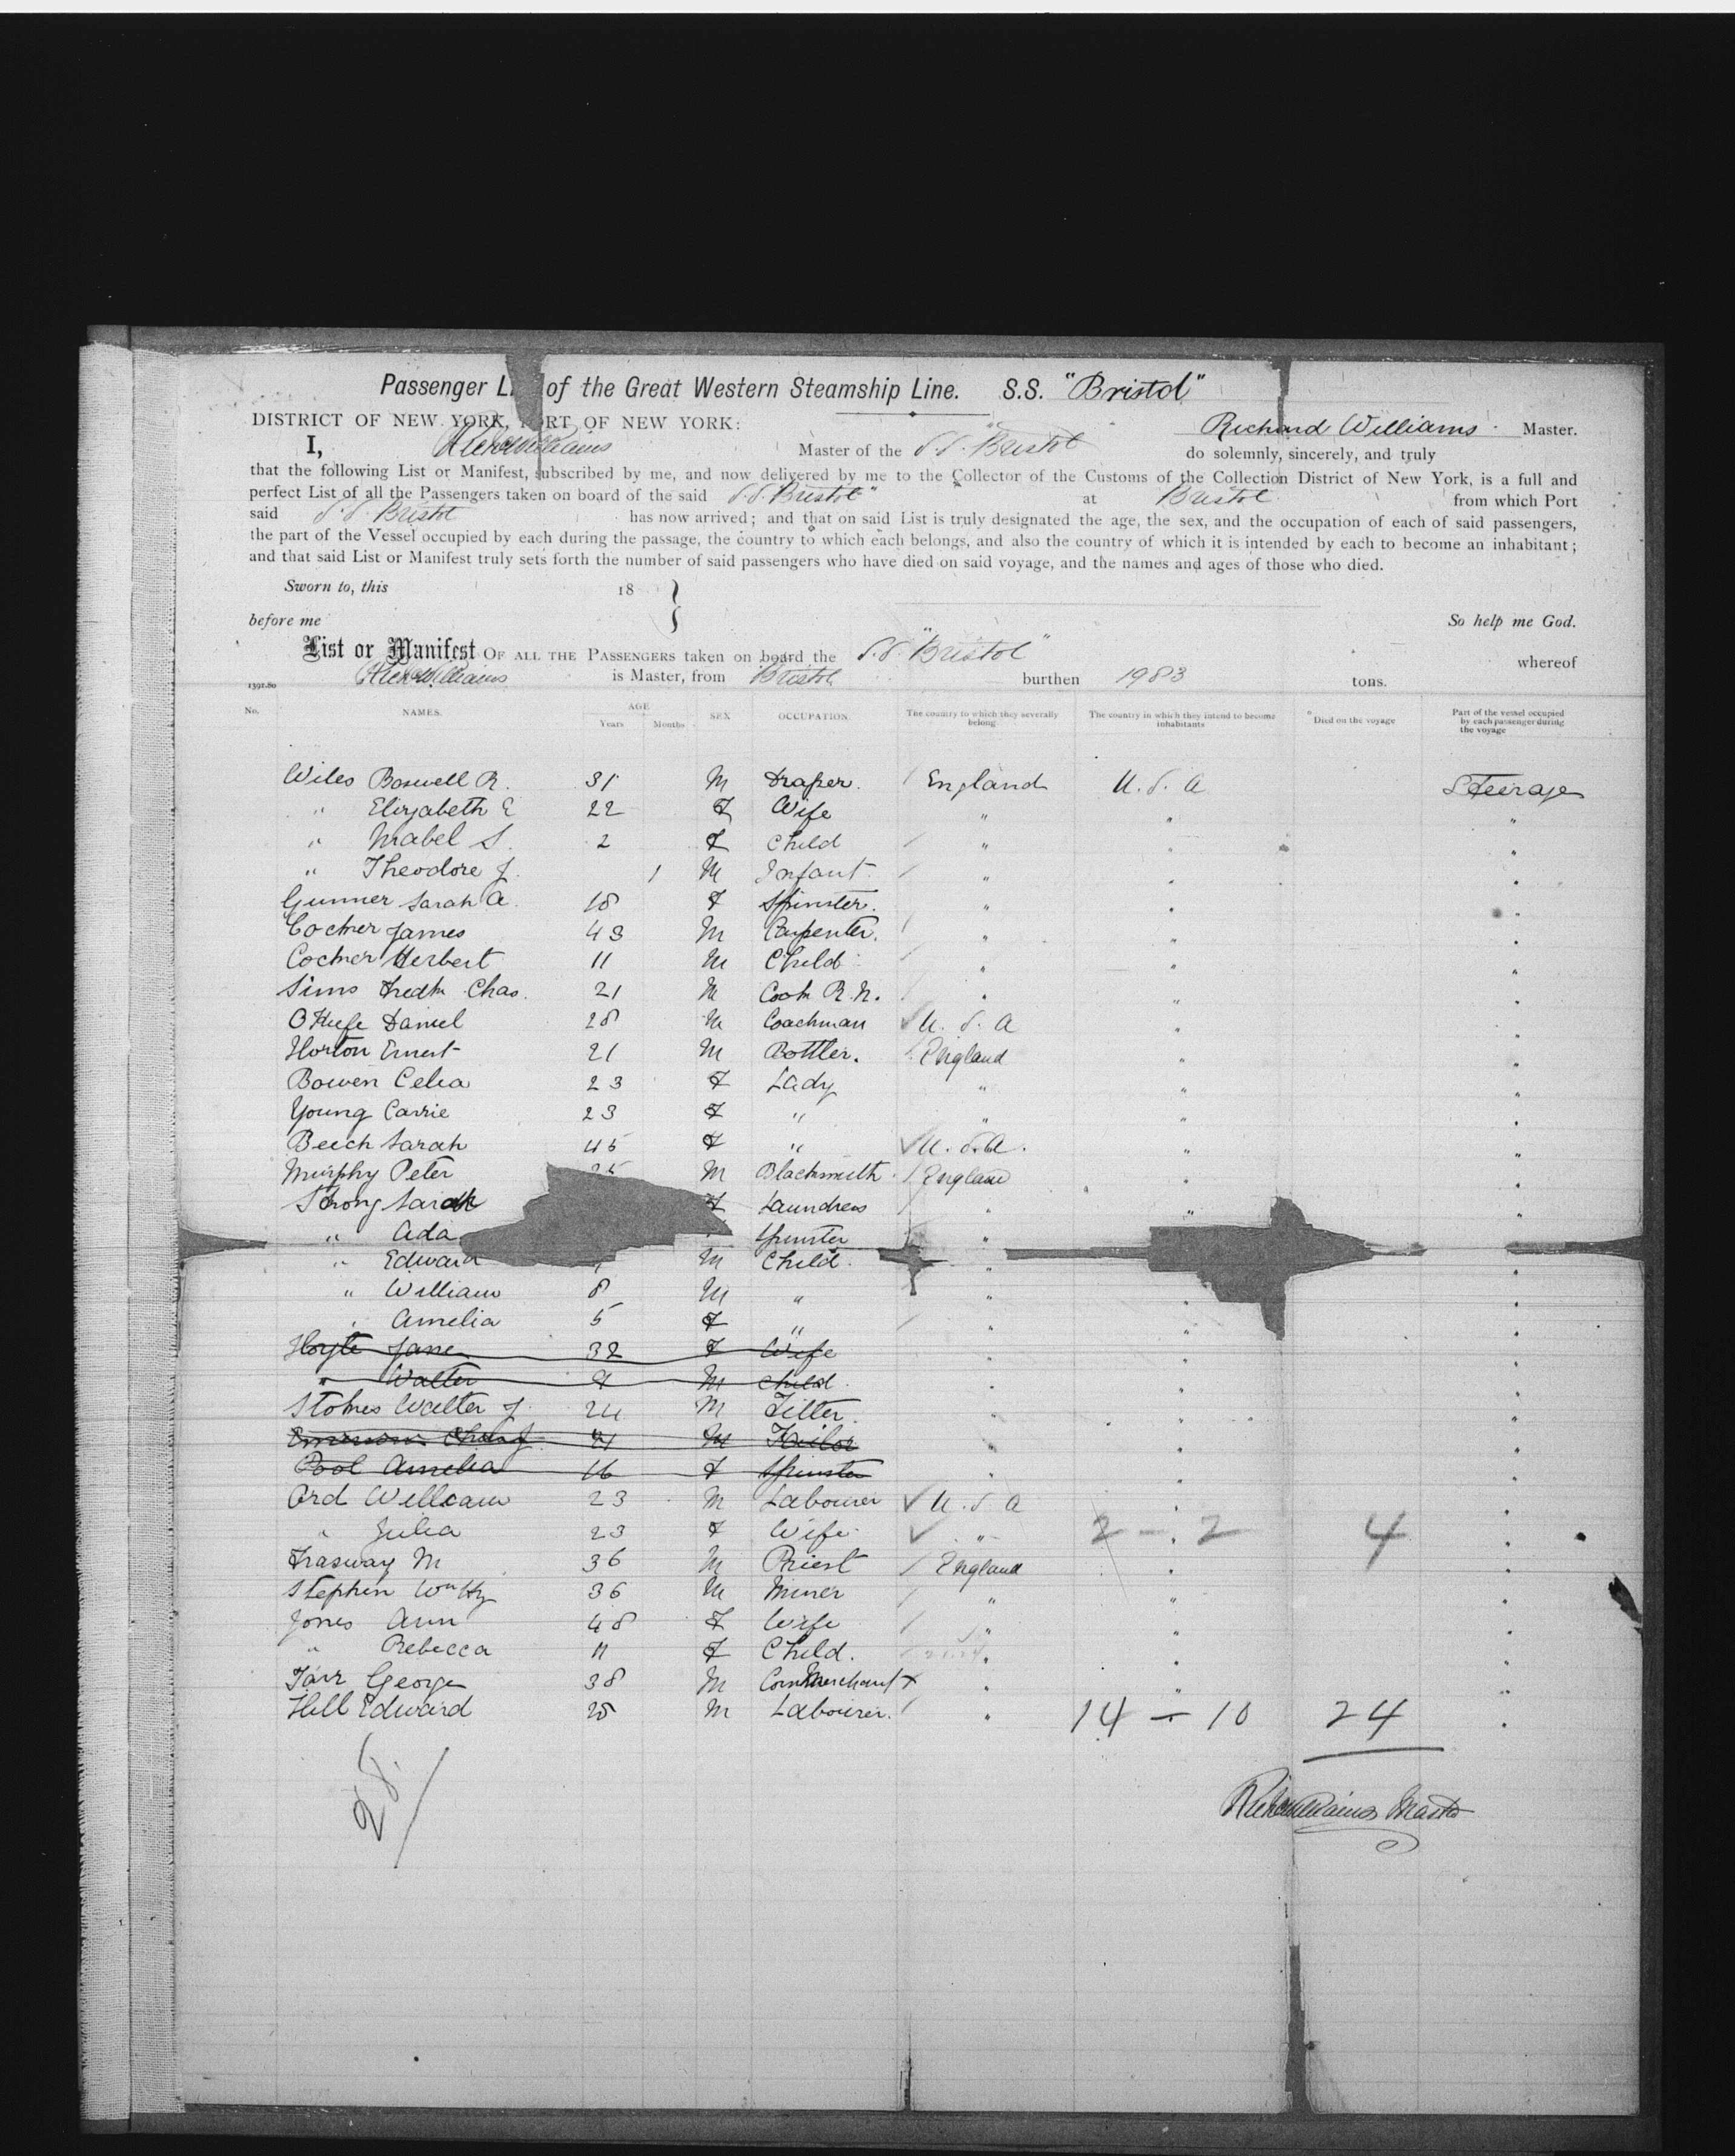 Passenger L of the Great Western Steamship Line. S.S. "Bristol"
DISTRICT OF NEW YORK, PORT OF NEW YORK:
Richard Williams Master.
I, Richd Williams Master of the S.S. Bristol do solemnly, sincerely, and truly
that the following List or Manifest, subscribed by me, and now delivered by me to the Collector of the Customs of the Collection District of New York, is a full and
perfect List of all the Passengers taken on board of the said S.S. Bristol" at Bristol from which Port
said S.S. Bristol has now arrived; and that on said List is truly designated the age, the sex, and the occupation of each of said passengers,
the part of the Vessel occupied by each during the passage, the country to which each belongs, and also the country of which it is intended by each to become an inhabitant;
and that said List or Manifest truly sets forth the number of said passengers who have died on said voyage, and the names and ages of those who died.
Sworn to, this 18
before me So help me God.
List or Manifest OF ALL THE PASSENGERS taken on board the S.S. "Bristol" whereof
Richd Williams is Master, from Bristol burthen 1983 tons.
1391.80
No. NAMES. AGE Years Months SEX OCCUPATION. The country to which they severally belong The country in which they intend to become inhabitants Died on the voyage Part of the vessel occupied by each passenger during the voyage
Wiles Boswell R. 31 M Draper. England U.S.A Steerage
" Elizabeth E 22 F Wife " " "
" Mabel S. 2 F Child " " "
" Theodore J. 1 M Infant " " "
Gunner Sarah A. 18 F Spinster. " " "
Cocher James 43 M Carpenter. " " "
Cocher Herbert 11 M Child " " "
Sims Fredk Chas. 21 M Cook R.N. " " "
O'Keefe Daniel 28 M Coachman U.S.A " "
Horton Ernest 21 M Bottler. England " "
Bowen Celia 23 F Lady " " "
Young Carrie 23 F " " " "
Beech Sarah 45 F " U.S.A. " "
Murphy Peter M Blacksmith England " "
Strong Sarah F Laundress " " "
" Ada Spinster "
" Edward M Child. " "
" William 8 M " " " "
" Amelia 5 F " " " "
Hoyte Jane 32 F Wife " " "
" Walter 9 M Child " " "
Stokes Walter J. 24 M Fitter. " " "
21 M Tailor " " "
Pool Amelia 16 F Spinster " " "
Ord William 23 M Labourer U.S.A " "
" Julia 23 F Wife " 2 - 2 4 "
Trasway M 36 M Priest England " "
Stephen Wm Hy 36 M Miner " " "
Jones Ann 48 F Wife " " "
" Rebecca 11 F Child. " " "
Tarr George 38 M Corn Merchant x " " "
Hill Edward 25 M Labourer. " 14 - 10 24 "
28/
Richd Williams Master